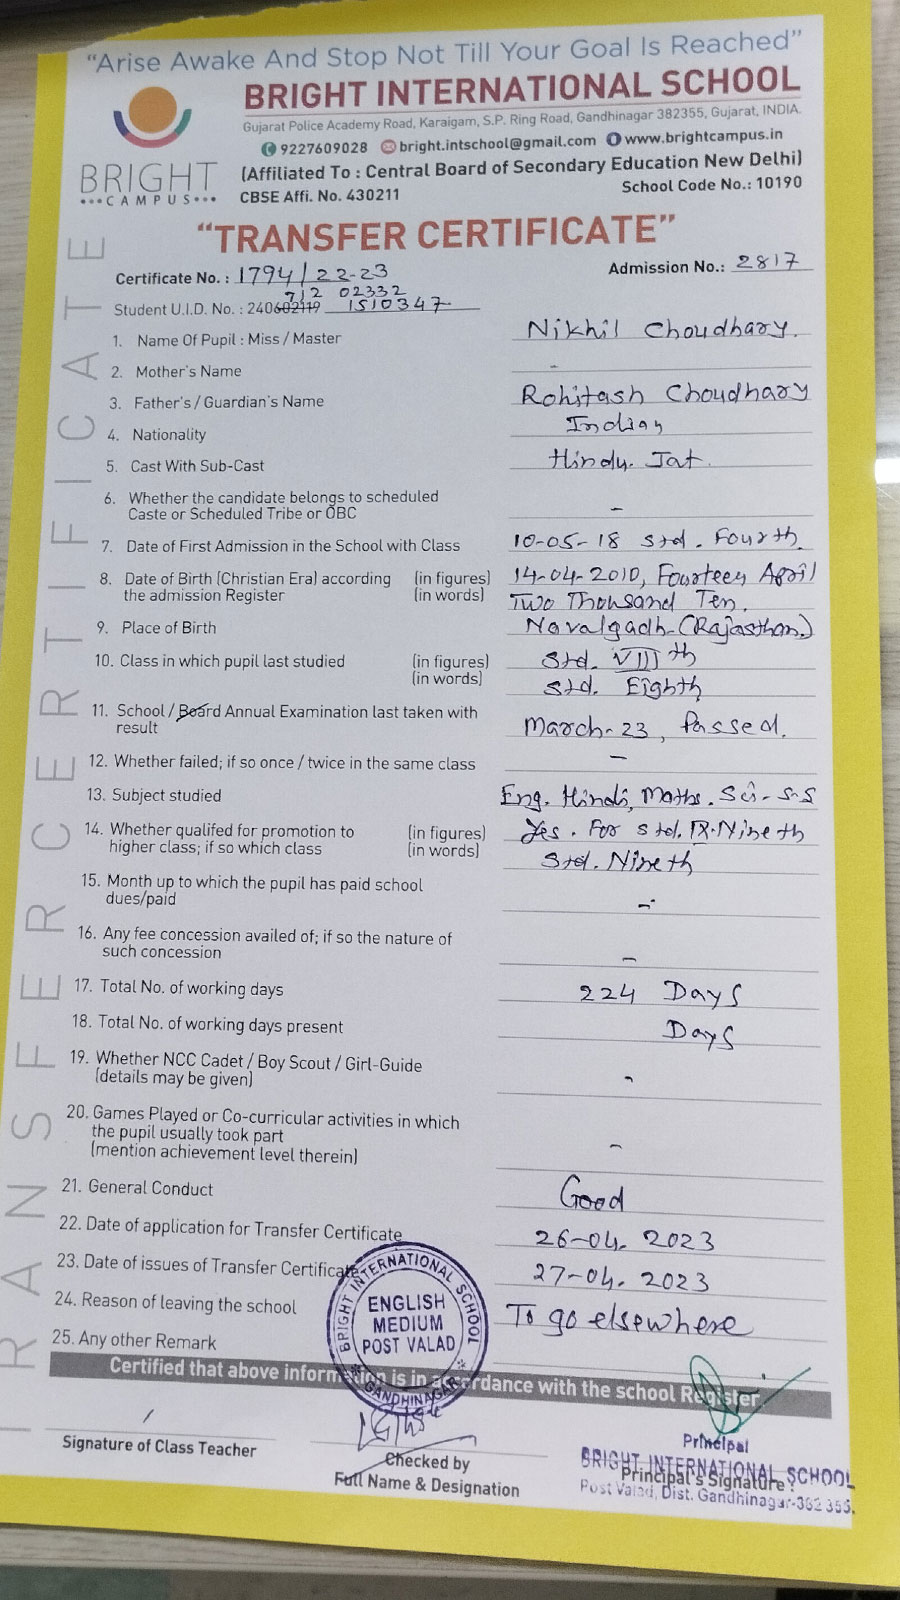 "Arise Awake And Stop Not Till Your Goal Is Reached"
BRIGHT INTERNATIONAL SCHOOL
Gujarat Police Academy Road, Karaigam, S.P. Ring Road, Gandhinagar 382355, Gujarat, INDIA.
9227609028 bright.intschool@gmail.com www.brightcampus.in
(Affiliated To : Central Board of Secondary Education New Delhi)
CBSE Affi. No. 430211 School Code No.: 10190
BRIGHT
•••CAMPUS•••
"TRANSFER CERTIFICATE"
TRANSFER CERTIFICATE
Certificate No. : 1794/22-23 Admission No.: 2817
712 02332
Student U.I.D. No. : 240602119 1510347
1. Name Of Pupil : Miss / Master Nikhil Choudhary.
2. Mother's Name -
3. Father's / Guardian's Name Rohitash Choudhary
4. Nationality Indian
5. Cast With Sub-Cast Hindu. Jat.
6. Whether the candidate belongs to scheduled
Caste or Scheduled Tribe or OBC -
7. Date of First Admission in the School with Class 10-05-18 Std. Fourth.
8. Date of Birth (Christian Era) according (in figures) 14-04-2010, Fourteen April
the admission Register (in words) Two Thousand Ten.
9. Place of Birth Navalgadh-(Rajasthan.)
10. Class in which pupil last studied (in figures) Std. VIII th
(in words) Std. Eighth
11. School / Board Annual Examination last taken with
result March-23, Passed.
12. Whether failed; if so once / twice in the same class -
13. Subject studied Eng. Hindi, Maths. Sci- S-S
14. Whether qualifed for promotion to (in figures) Yes. For std. IX-Nineth
higher class; if so which class (in words) Std. Nineth
15. Month up to which the pupil has paid school
dues/paid -
16. Any fee concession availed of; if so the nature of
such concession -
17. Total No. of working days 224 Days
18. Total No. of working days present Days
19. Whether NCC Cadet / Boy Scout / Girl-Guide
(details may be given) -
20. Games Played or Co-curricular activities in which
the pupil usually took part
(mention achievement level therein) -
21. General Conduct Good
22. Date of application for Transfer Certificate 26-04-2023
23. Date of issues of Transfer Certificate 27-04-2023
24. Reason of leaving the school To go elsewhere
25. Any other Remark
BRIGHT INTERNATIONAL SCHOOL
ENGLISH
MEDIUM
POST VALAD
* GANDHINAGAR *
Certified that above information is in accordance with the school Register.
Signature of Class Teacher
Checked by
Full Name & Designation
Principal
BRIGHT INTERNATIONAL SCHOOL
Principal's Signature :
Post Valad, Dist. Gandhinagar-382 355.